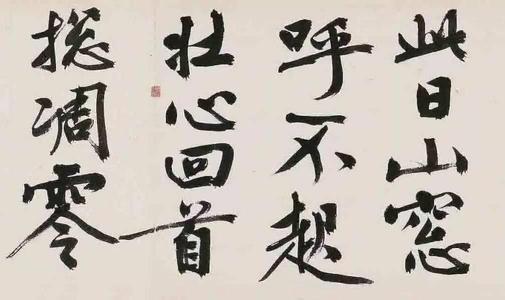 此日山窓
呼不起
壮心回首
揔凋零